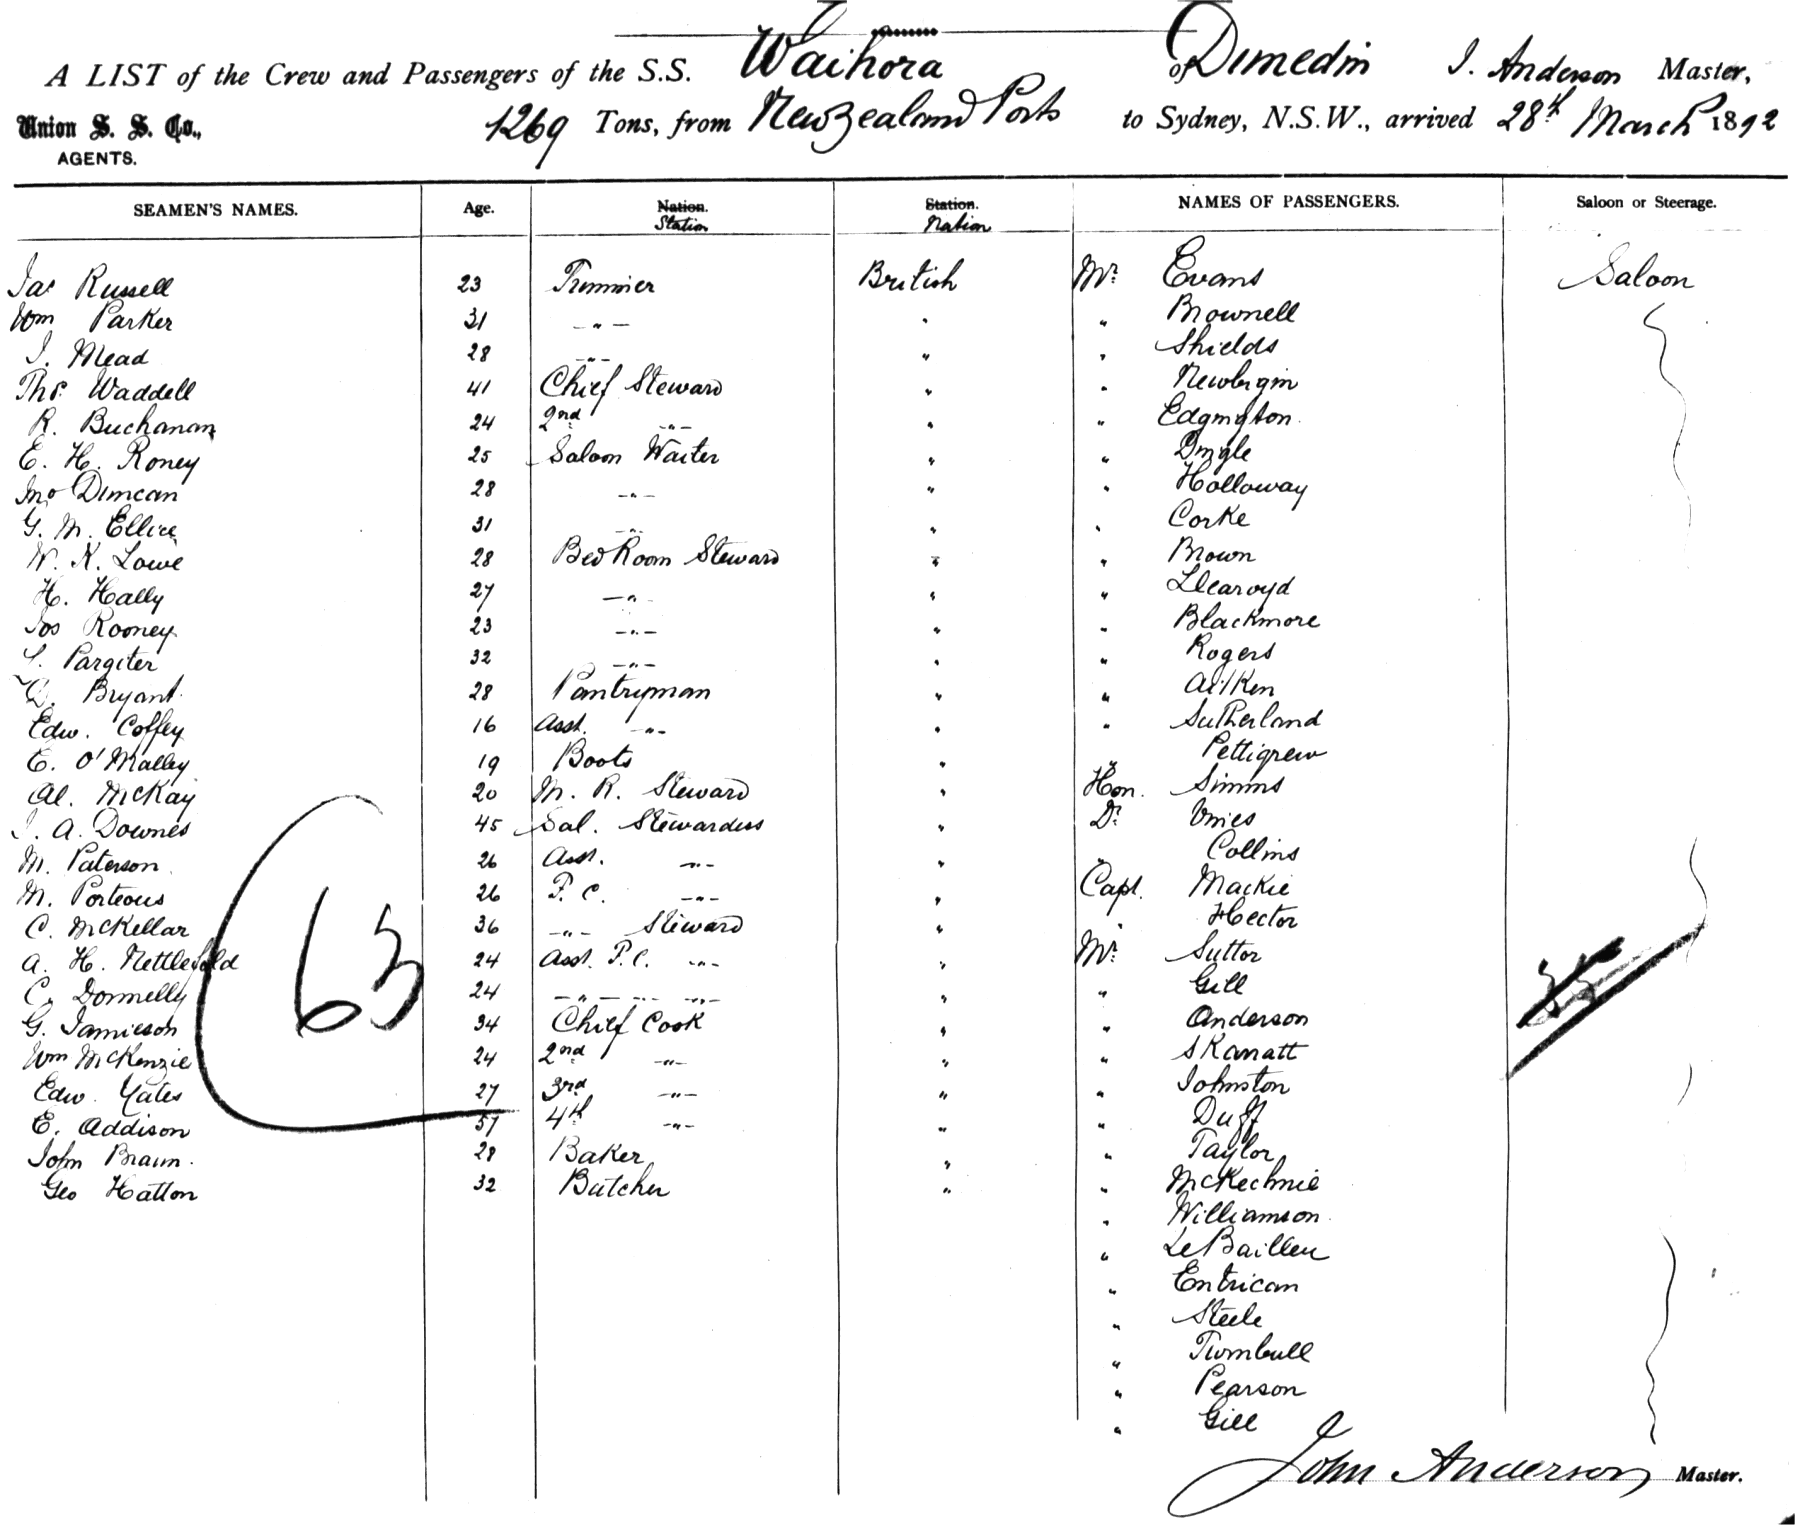 A LIST of the Crew and Passengers of the S.S. Waihora of Dunedin J. Anderson Master,
Union S. S. Co., AGENTS. 1269 Tons, from New Zealand Ports to Sydney, N.S.W., arrived 28th March 1892
SEAMEN'S NAMES. Age. Nation. Station Station. Nation NAMES OF PASSENGERS. Saloon or Steerage.
Jas Russell 23 Trimmer British Mr. Evans Saloon
Wm Parker 31 -"- " " Brownell
J. Mead 28 -"- " " Shields
Thos. Waddell 41 Chief Steward " " Newbigin
R. Buchanan 24 2nd -"- " " Edgington
E. H. Roney 25 Saloon Waiter " " Dingle
Jno Duncan 28 -"- " " Holloway
G. M. Ellice 31 -"- " " Corke
W. K. Lowe 28 Bed Room Steward " " Brown
H. Hally 27 -"- " " Learoyd
Jos Rooney 23 -"- " " Blackmore
Pargiter 32 -"- " " Rogers
Bryant 28 Pantryman " " Aitken
Edw. Coffey 16 Asst. -"- " " Sutherland
E. O'Malley 19 Boots " " Pettigrew
Al. McKay 20 M. R. Steward " Hon. Simms
J. A. Downes 45 Sal. Stewardess " Dr.
M. Paterson 26 Asst. -"- " " Collins
M. Porteous 26 F. C. -"- " Capt. Mackie
C. McKellar 36 -"- Steward " " Hector
A. H. Nettlefold 24 Asst. F.C. -"- " Mr. Suttor
C. Donnelly 24 -"- -"- -"- " " Gill
G. Jamieson 34 Chief Cook " " Anderson
Wm McKenzie 24 2nd -"- " " Skanatt
Edw. Yates 27 3rd -"- " " Johnston
E. Addison 57 4th -"- " " Duff
John Braun 28 Baker " " Taylor
Geo Hatton 32 Butcher " " McKechnie
" Williamson
" Le Baillen
" Entrican
" Steele
" Turnbull
" Pearson
" Gill
63
35
John Anderson Master.